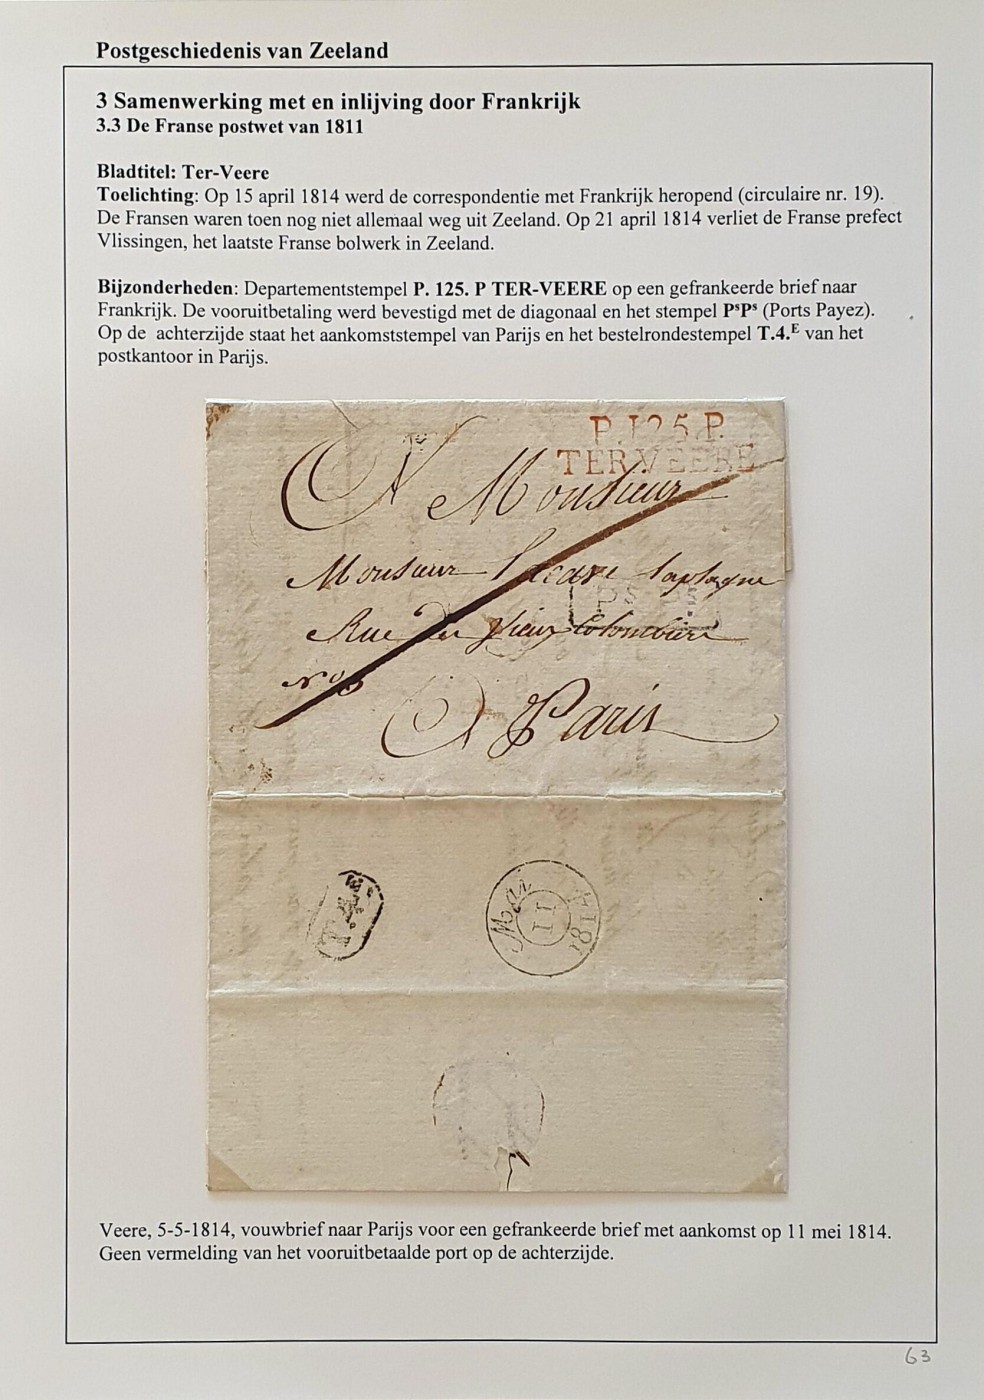 Postgeschiedenis van Zeeland
3 Samenwerking met en inlijving door Frankrijk
3.3 De Franse postwet van 1811
Bladtitel: Ter-Veere
Toelichting: Op 15 april 1814 werd de correspondentie met Frankrijk heropend (circulaire nr. 19).
De Fransen waren toen nog niet allemaal weg uit Zeeland. Op 21 april 1814 verliet de Franse prefect
Vlissingen, het laatste Franse bolwerk in Zeeland.
Bijzonderheden: Departementstempel P. 125. P TER-VEERE op een gefrankeerde brief naar
Frankrijk. De vooruitbetaling werd bevestigd met de diagonaal en het stempel PˢPˢ (Ports Payez).
Op de achterzijde staat het aankomststempel van Parijs en het bestelrondestempel T.4.ᴱ van het
postkantoor in Parijs.
P.125.P.
TER-VEERE
A Monsieur
Monsieur
Rue du Vieux Colombier
N° 
A Paris
T.4.
Mai
11
1814
Veere, 5-5-1814, vouwbrief naar Parijs voor een gefrankeerde brief met aankomst op 11 mei 1814.
Geen vermelding van het vooruitbetaalde port op de achterzijde.
63